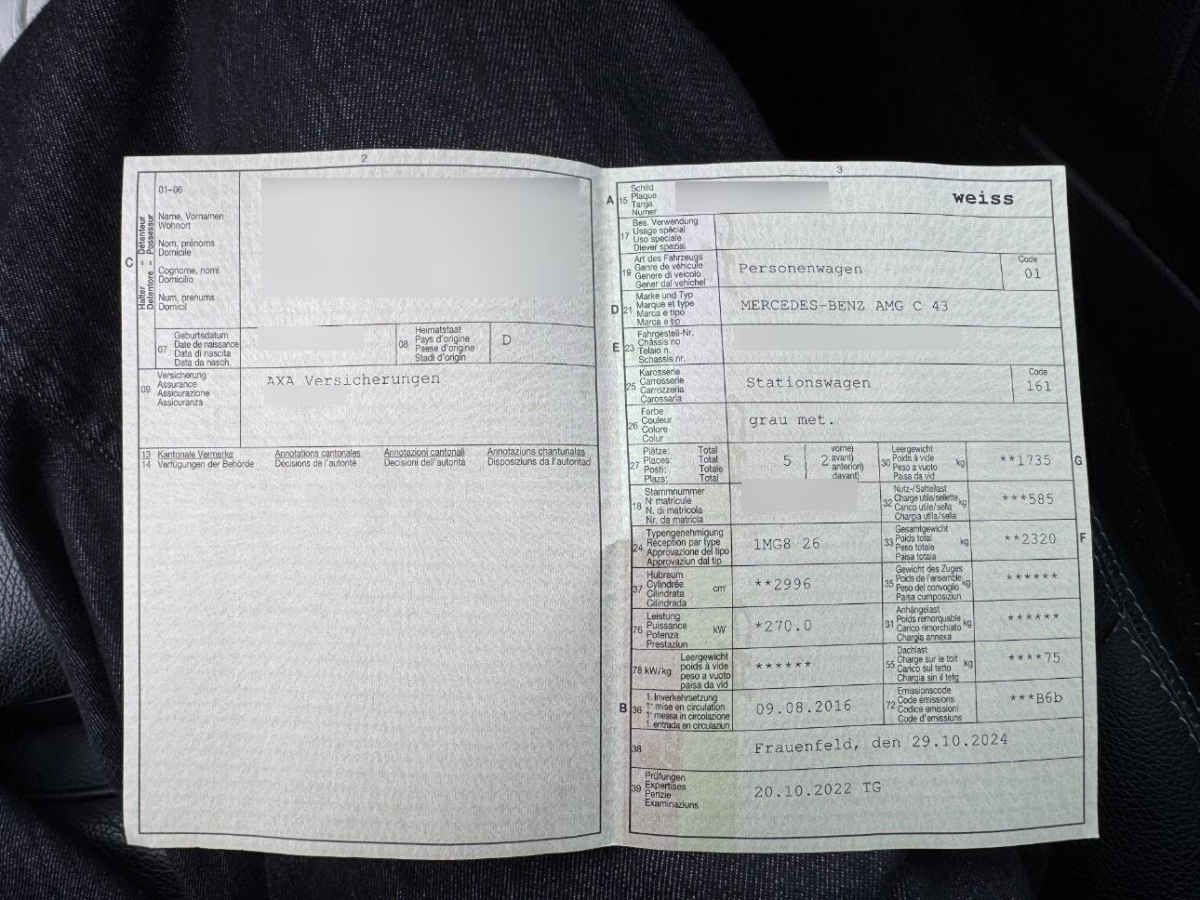 2
01-06
Halter - Détenteur
Detentore - Possessur
C
Name, Vornamen
Wohnort
Nom, prénoms
Domicile
Cognome, nomi
Domicilio
Num, prenums
Domicil
07
Geburtsdatum
Date de naissance
Data di nascita
Data da nasch.
08
Heimatstaat
Pays d'origine
Paese d'origine
Stadi d'origin
D
09
Versicherung
Assurance
Assicurazione
Assicuranza
AXA Versicherungen
13 Kantonale Vermerke Annotations cantonales Annotazioni cantonali Annotaziuns chantunalas
14 Verfügungen der Behörde Décisions de l'autorité Decisioni dell'autorità Disposiziuns da l'autoritad
3
A 15
Schild
Plaque
Targa
Numer
weiss
17
Bes. Verwendung
Usage spécial
Uso speciale
Diever spezial
19
Art des Fahrzeugs
Genre de véhicule
Genere di veicolo
Gener dal vehichel
Personenwagen
Code
01
D 21
Marke und Typ
Marque et type
Marca e tipo
Marca e tip
MERCEDES-BENZ AMG C 43
E 23
Fahrgestell-Nr.
Châssis no
Telaio n.
Schassis nr.
25
Karosserie
Carrosserie
Carrozzeria
Carossaria
Stationswagen
Code
161
26
Farbe
Couleur
Colore
Colur
grau met.
27
Plätze: Total
Places: Total
Posti: Totale
Plazs: Total
5
2
vorne)
avant)
anteriori)
davant)
30
Leergewicht
Poids à vide
Peso a vuoto
Paisa da vid
kg
**1735
G
18
Stammnummer
N° matricule
N. di matricola
Nr. da matricla
32
Nutz-/Sattellast
Charge utile/sellette
Carico utile/sella
Chargia utila/sella
kg
***585
24
Typengenehmigung
Réception par type
Approvazione del tipo
Approvaziun dal tip
1MG8 26
33
Gesamtgewicht
Poids total
Peso totale
Paisa totala
kg
**2320
F
37
Hubraum
Cylindrée
Cilindrata
Cilindrada
cm³
**2996
35
Gewicht des Zuges
Poids de l'ensemble
Peso del convoglio
Paisa cumposiziun
kg
******
76
Leistung
Puissance
Potenza
Prestaziun
kW
*270.0
31
Anhängelast
Poids remorquable
Carico rimorchiato
Chargia annexa
kg
******
78 kW/kg
Leergewicht
poids à vide
peso a vuoto
paisa da vid
******
55
Dachlast
Charge sur le toit
Carico sul tetto
Chargia sin il tetg
kg
****75
B 36
1. Inverkehrsetzung
1re mise en circulation
1a messa in circolazione
1. entrada en circulaziun
09.08.2016
72
Emissionscode
Code émissions
Codice emissioni
Code d'emissiuns
***B6b
38
Frauenfeld, den 29.10.2024
39
Prüfungen
Expertises
Perizie
Examinaziuns
20.10.2022 TG